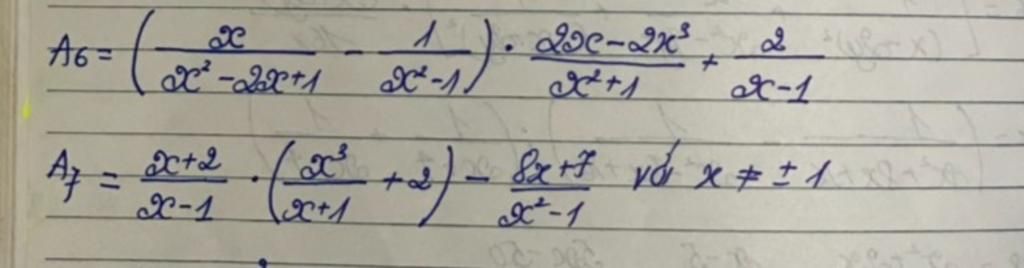 A₆ = (x/(x²-2x+1) - 1/(x²-1)) · (2x-2x³)/(x²+1) + 2/(x-1)
A₇ = (x+2)/(x-1) · (x³/(x+1) + 2) - (8x+7)/(x²-1) với x ≠ ± 1